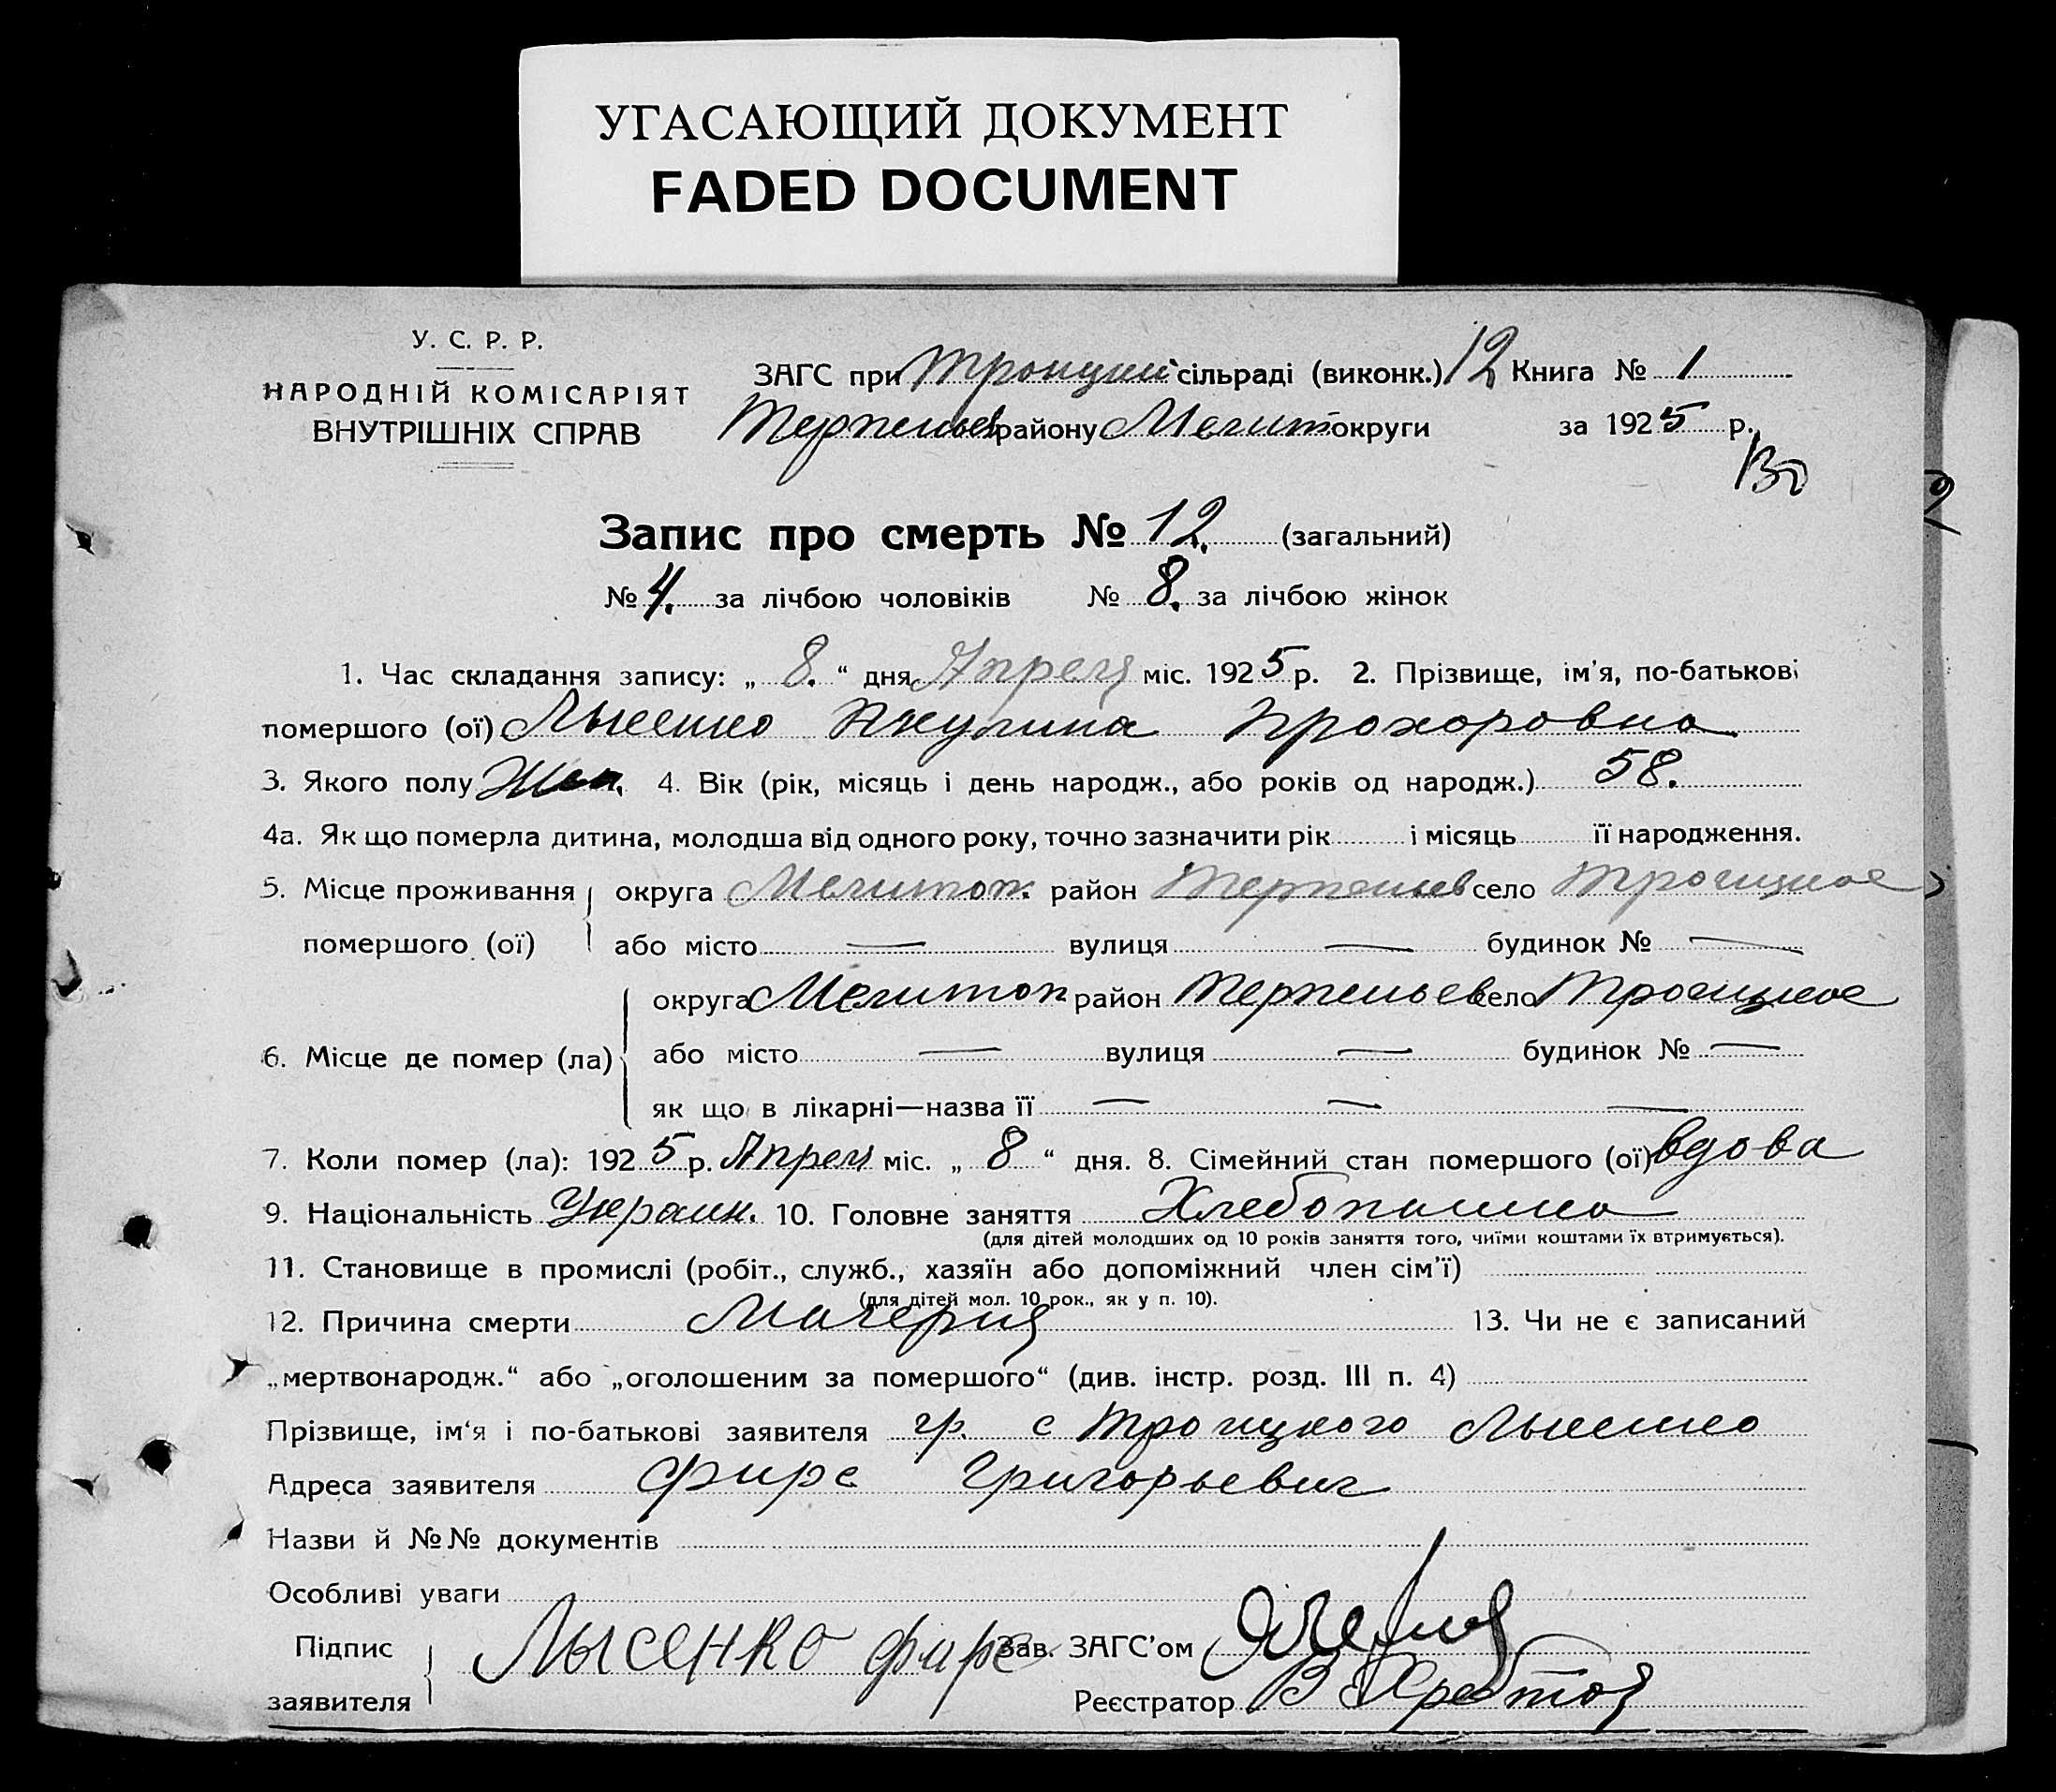 УГАСАЮЩИЙ ДОКУМЕНТ
FADED DOCUMENT
У. С. Р. Р.
НАРОДНІЙ КОМІСАРІЯТ
ВНУТРІШНІХ СПРАВ
ЗАГС при Троицкой сільраді (виконк.) 12 Книга № 1
Терпеньев району Мелитоп округи за 1925 р.
130
Запис про смерть № 12. (загальний)
№ 4. за лічбою чоловіків № 8. за лічбою жінок
1. Час складання запису: „ 8. “ дня Апреля міс. 1925 р. 2. Прізвище, ім'я, по-батькові
помершого (ої) Лысенко Акулина Прохоровна
3. Якого полу Жен. 4. Вік (рік, місяць і день народж., або років од народж.) 58.
4а. Як що померла дитина, молодша від одного року, точно зазначити рік і місяць її народження.
5. Місце проживання округа Мелитоп. район Терпеньев село Троицкое
помершого (ої) або місто — вулиця — будинок № —
округа Мелитоп район Терпеньев село Троицкое
6. Місце де помер (ла) або місто — вулиця — будинок № —
як що в лікарні—назва її — — —
7. Коли помер (ла): 1925 р. Апреля міс. „ 8 “ дня. 8. Сімейний стан помершого (ої) вдова
9. Національність Украин. 10. Головне заняття Хлебопашка
(для дітей молодших од 10 років заняття того, чиїми коштами їх втримується).
11. Становище в промислі (робіт., служб., хазяїн або допоміжний член сім'ї)
(для дітей мол. 10 рок., як у п. 10).
12. Причина смерти Малерия 13. Чи не є записаний
„мертвонародж.“ або „оголошеним за помершого“ (див. інстр. розд. III п. 4)
Прізвище, ім'я і по-батькові заявителя гр. с Троицкого Лысенко
Адреса заявителя Фирс Григорьевич
Назви й №№ документів
Особливі уваги
Підпис Лысенко Фирс Зав. ЗАГС'ом
заявителя Реєстратор В